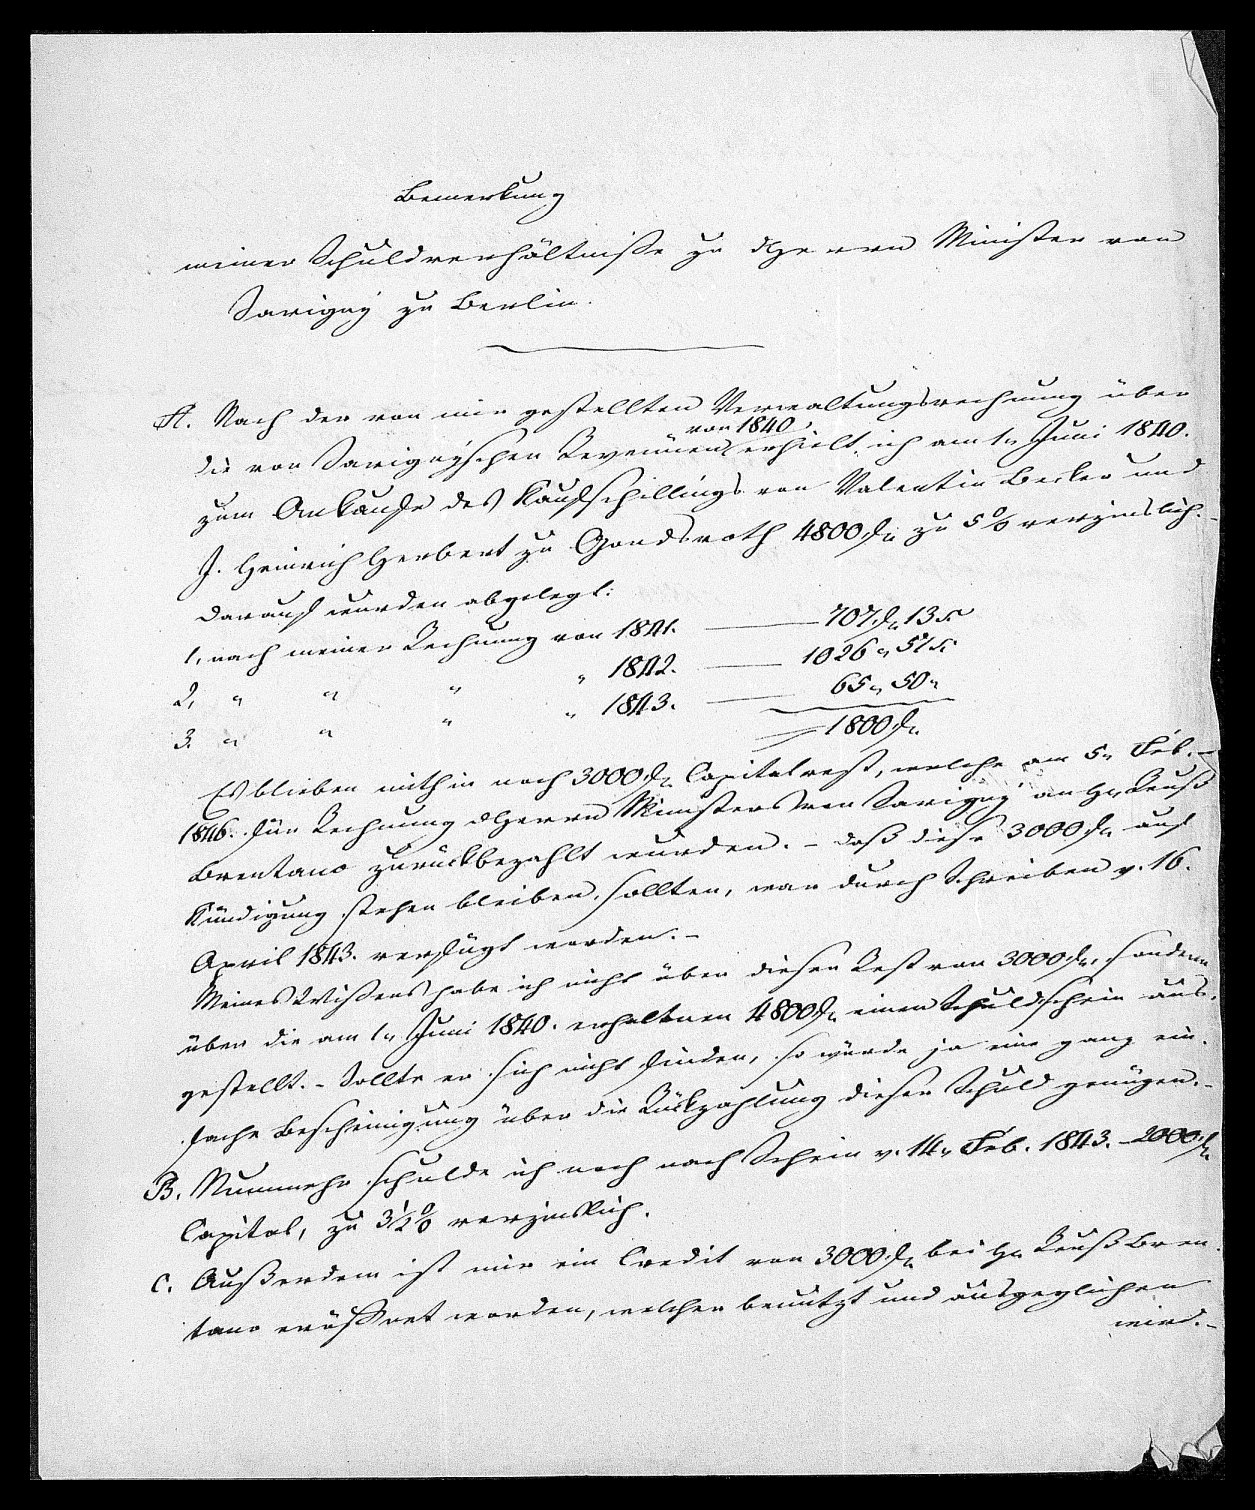 Bemerkung
meiner Schuldverhältniße zu dHerrn Minister von
Savigny zu Berlin.
A. Nach der von mir gestellten Verwaltungsrechnung über
von 1840
die von Savignyschen Revenüen erhielt ich am 1n Juni 1840.
zum Ankaufe des Kaufschillings von Valentin Becker und
J. Heinrich Herbert zu Gondsroth 4800 f. zu 5% verzinslich.-
darauf wurden abgelegt:
1, nach meiner Rechnung von 1841. — 707 f. 13 x
2, " " " " 1842. — 1026 " 57 x
3. " " " " 1843. — 65 " 50 "
1800 f.
Es blieben mithin noch 3000 f. Capitalrest, welche am 5n Feb.
1846. für Rechnung dHerrn Ministers von Savigny an H. Reuß
Brentano zurückbezahlt wurden. - daß diese 3000 f. auf
Kündigung stehen bleiben sollten, war durch Schreiben v. 16.
April 1843. verfügt worden.-
Meines Wißens habe ich nicht über diesen Rest von 3000 f. sondern
über die am 1n Juni 1840. erhaltnen 4800 f. einen Schuldschein aus-
gestellt. - Sollte er sich nicht finden, so würde ja eine ganz ein-
fache Bescheinigung über die Rückzahlung dieser Schuld genügen.-
B. Nunmehr schulde ich noch nach Schein v. 14n Feb. 1843. - 2000 f.
Capital, zu 3½% verzinslich.
C. Außerdem ist mir ein Credit von 3000 f. bei H. Reuß Bren-
tano eröffnet worden, welcher benutzt und ausgeglichen
wird.-